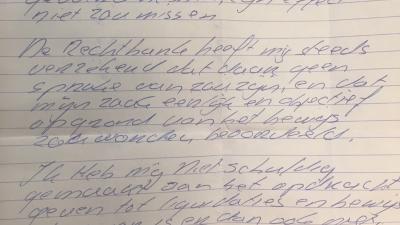 niet zou missen
De Rechtbank heeft mij steeds
verzekerd dat daar geen
sprake van zou zijn, en dat
mijn zaak eerlijk en objectief
op grond van het bewijs
zou worden beoordeeld.
Ik heb mij niet schuldig
gemaakt aan het opdracht
geven tot liquidaties en bewijs
is en dan ook niet